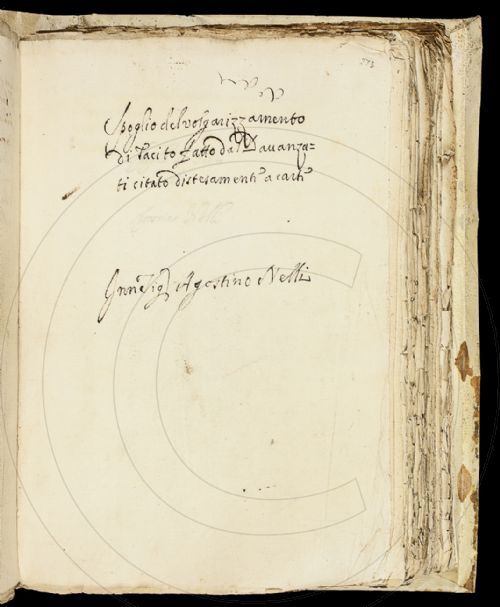 Spoglio del volgarizzamento
di Tacito fatto dal Davanza=
ti citato distesamente a carte
Agostino Nelli